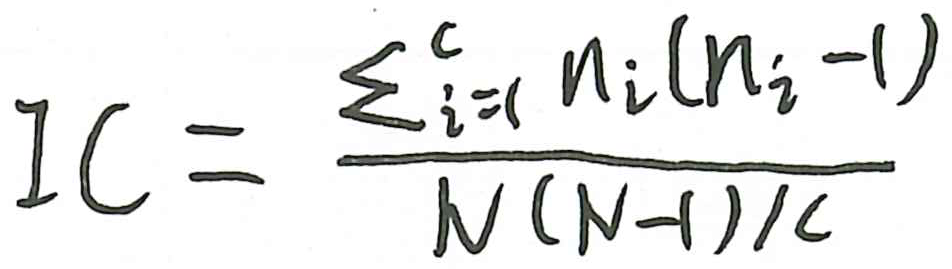 IC = \frac{\sum_{i=1}^{c} n_i(n_i-1)}{N(N-1)/c}